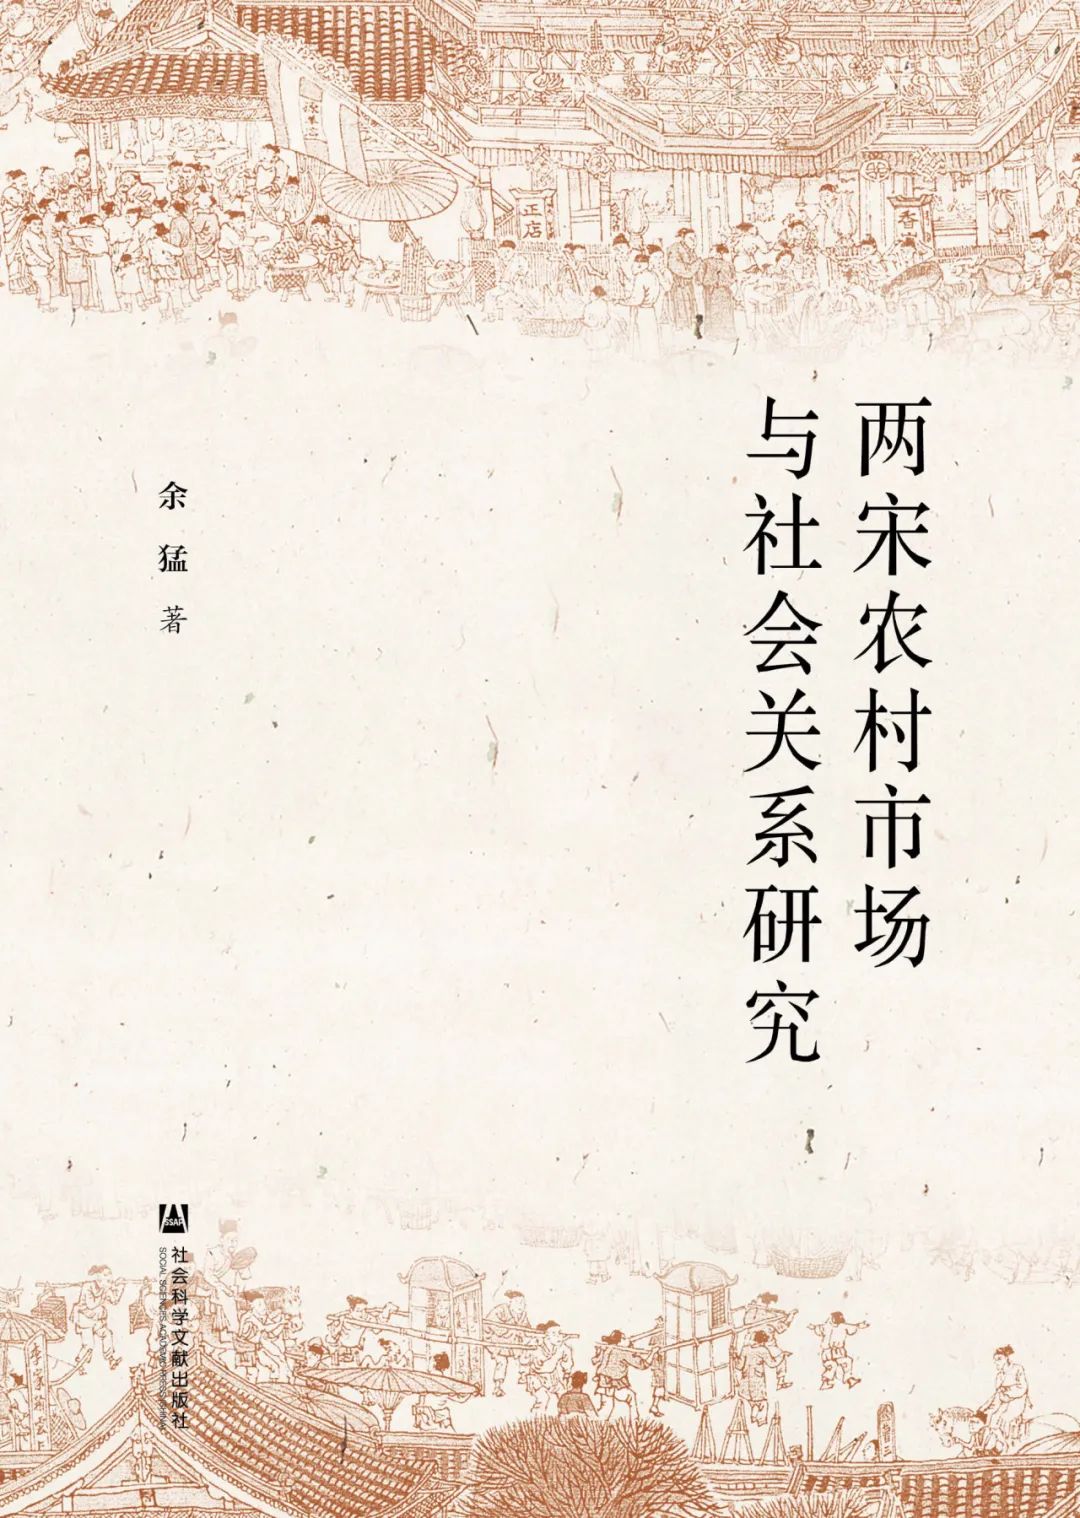 两宋农村市场
与社会关系研究
余猛 著
SSAP
社会科学文献出版社
SOCIAL SCIENCES ACADEMIC PRESS (CHINA)
正店
香